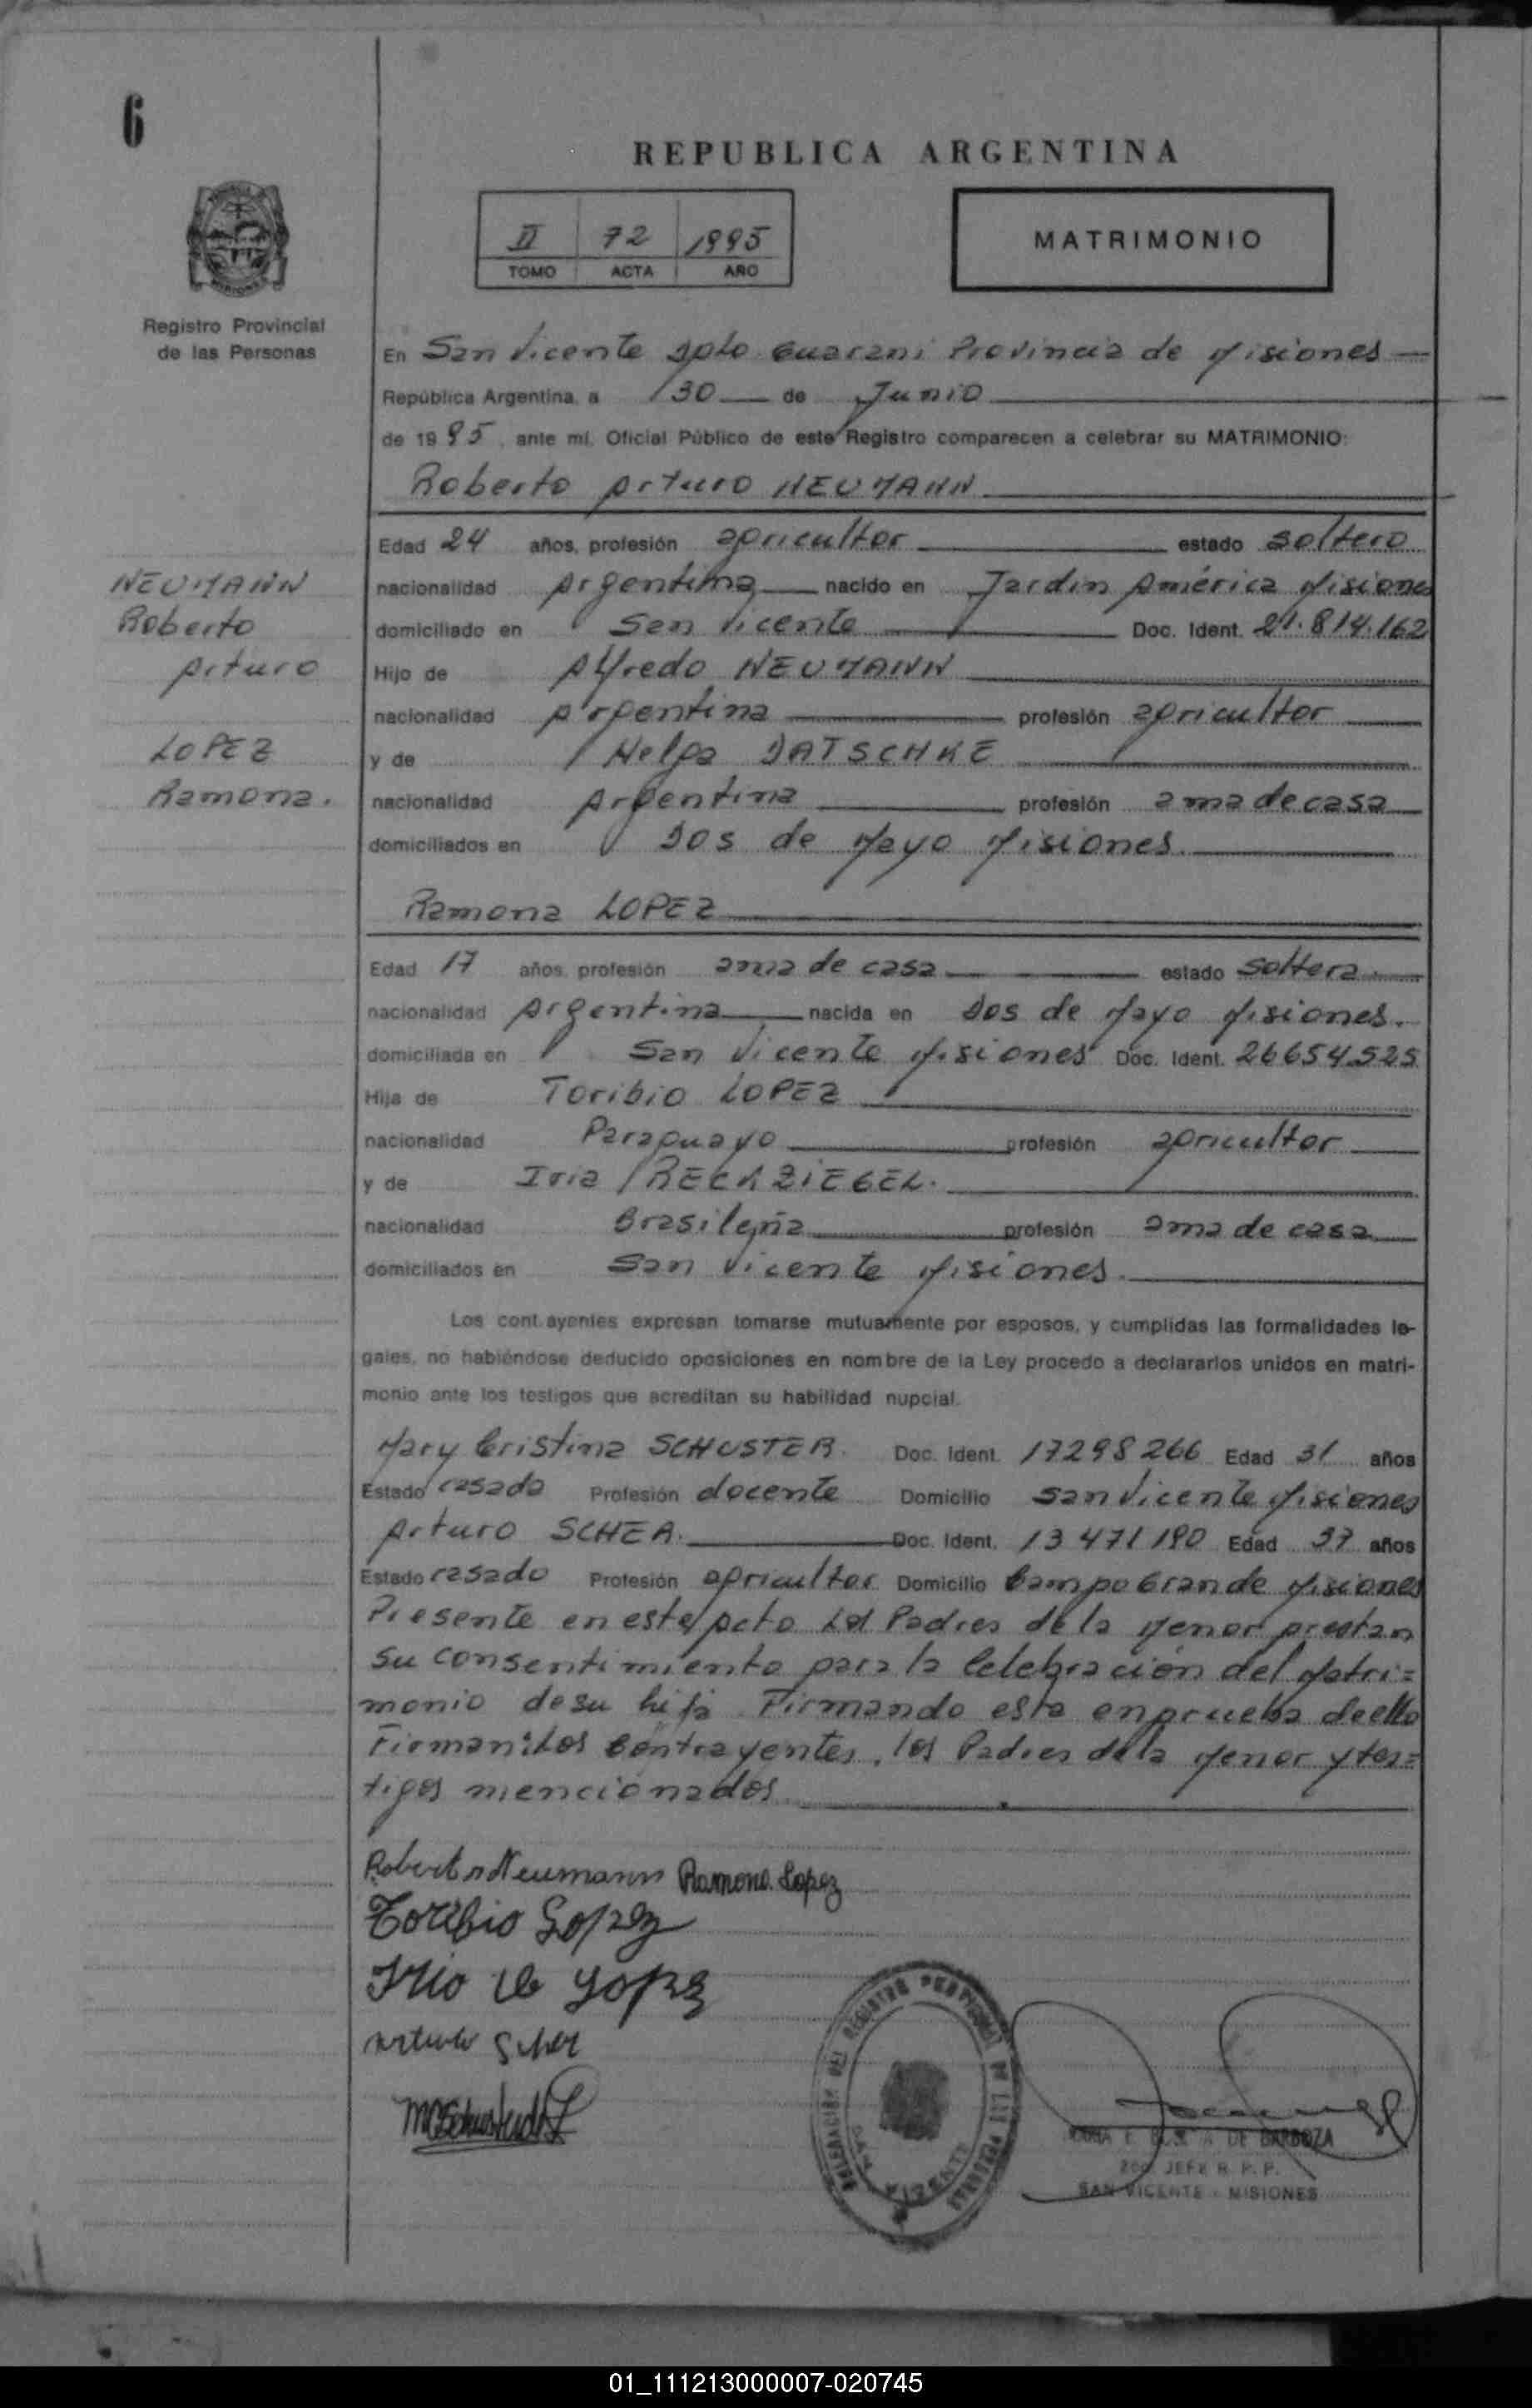 6
REPUBLICA ARGENTINA
II 72 1995
TOMO ACTA AÑO
MATRIMONIO
Registro Provincial
de las Personas
En San Vicente Dpto Guarani Provincia de Misiones
República Argentina, a 30 de Junio
de 1995, ante mí, Oficial Público de este Registro comparecen a celebrar su MATRIMONIO:
Roberto Arturo NEUMANN
Edad 24 años, profesión agricultor estado soltero
nacionalidad Argentina nacido en Jardin América Misiones
domiciliado en San Vicente Doc. Ident. 21.814.162
Hijo de Alfredo NEUMANN
nacionalidad Argentina profesión agricultor
y de Helga DATSCHKE
nacionalidad Argentina profesión ama de casa
domiciliados en Dos de Mayo Misiones.
NEUMANN
Roberto
Arturo
LOPEZ
Ramona.
Ramona LOPEZ
Edad 17 años, profesión ama de casa estado soltera.
nacionalidad Argentina nacida en Dos de Mayo Misiones.
domiciliada en San Vicente Misiones Doc. Ident. 26654525
Hija de Toribio LOPEZ
nacionalidad Paraguayo profesión agricultor
y de Iria RECKZIEGEL.
nacionalidad Brasileña profesión ama de casa
domiciliados en San Vicente Misiones.
Los contrayentes expresan tomarse mutuamente por esposos, y cumplidas las formalidades le-
gales, no habiéndose deducido oposiciones en nombre de la Ley procedo a declararlos unidos en matri-
monio ante los testigos que acreditan su habilidad nupcial.
Mary Cristina SCHUSTER. Doc. Ident. 17298266 Edad 31 años
Estado casada Profesión docente Domicilio San Vicente Misiones
Arturo SCHER. Doc. Ident. 13471190 Edad 37 años
Estado casado Profesión agricultor Domicilio Campo Grande Misiones
Presente en este Acto Los Padres de la Menor prestan
su consentimiento para la Celebración del Matri=
monio de su hija Firmando esta en prueba de ello
Firman: Los Contrayentes, los Padres de la Menor y tes=
tigos mencionados
Roberto Neumann Ramona Lopez
Toribio Lopez
Iria de Lopez
Arturo Scher
DELEGACIÓN DEL REGISTRO PROVINCIAL DE LAS PERSONAS
SAN VICENTE
DE BARBOZA
2do. JEFE R. P. P.
SAN VICENTE - MISIONES
01_111213000007-020745